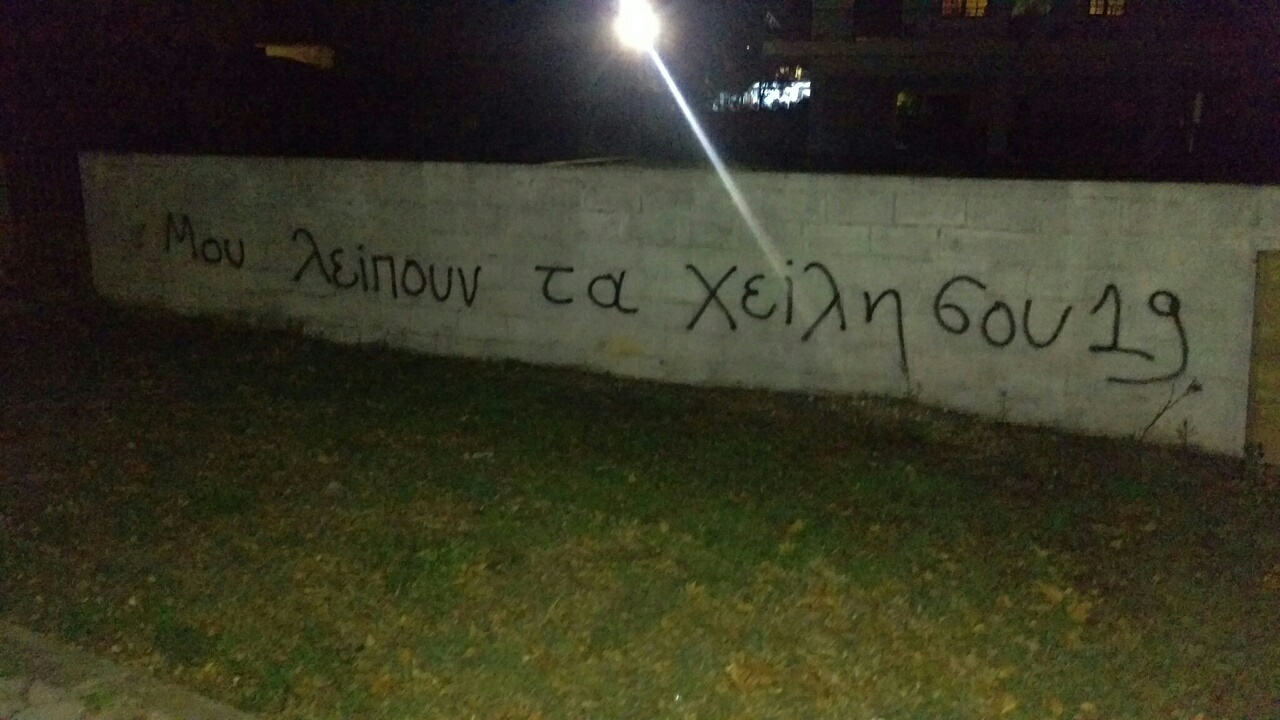 Μου λείπουν τα χείλη σου 19